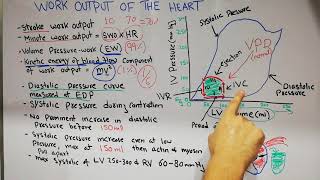 WORK OUTPUT OF THE HEART
- Stroke work output
- Minute work output = SWO × HR
- Volume Pressure-work (EW) (99%)
- Kinetic energy of blood flow
Component of work output = mv²/2 (1%)
- Diastolic Pressure curve
measured at EDP
- Systolic Pressure during contraction
- No prominent increase in diastolic
Pressure before 150ml
- Systolic pressure increase even at low
Pressure, max at 150ml then actin & myosin
pull apart
- max Systolic of LV 250-300 & RV 60-80 mmHg
Systolic Pressure
Ejection
VPD
(normal)
IVC
IVR
Diastolic
Pressure
IV Pressure (mmHg)
300
250
200
150
100
50
LV Volume (ml)
Period